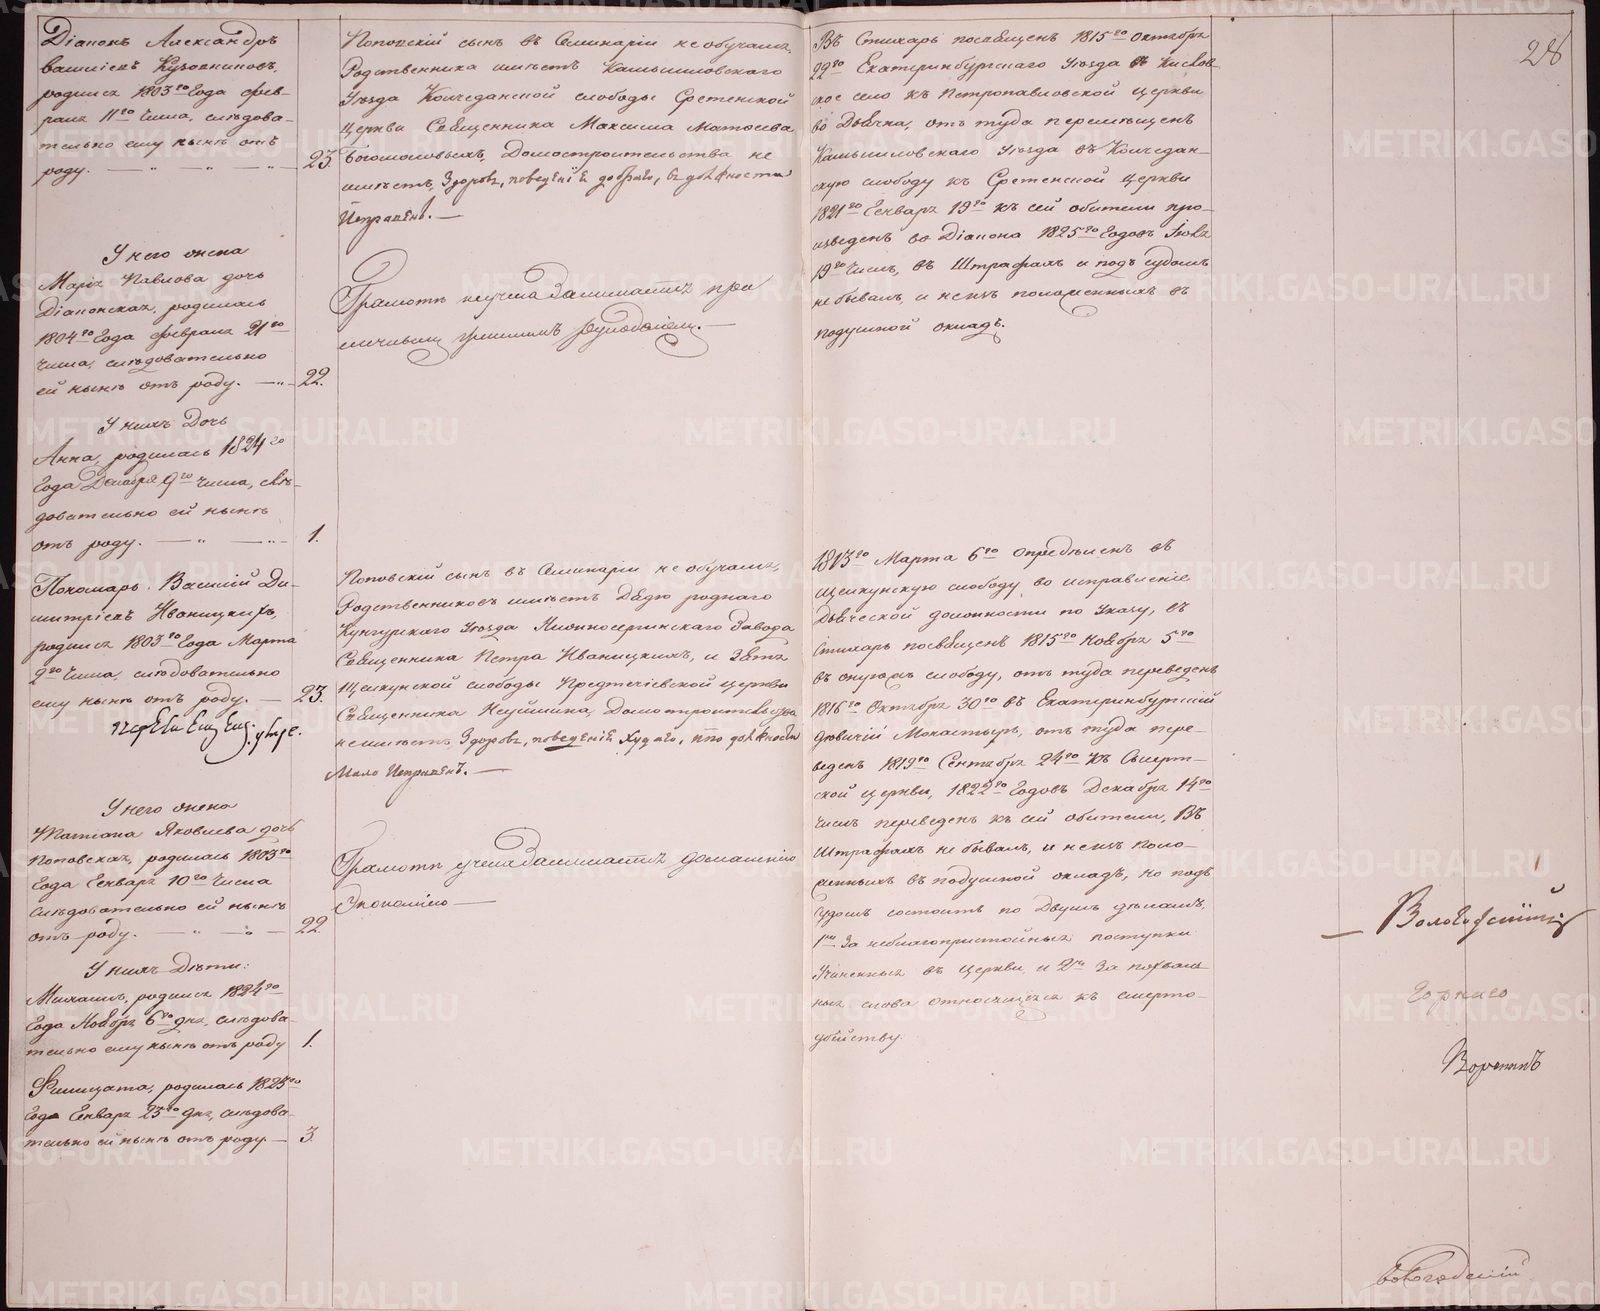 28
Діаконъ Александръ
Васильевъ Кузовниковъ,
родился 1803го Года фев-
раля 11го Числа, слѣдова-
тельно ему нынѣ отъ
роду. 23.
У него жена
Марія Павлова дочь
Діаконская, родилась
1804го Года февраля 21го
Числа, слѣдовательно
ей нынѣ отъ роду. 22.
У нихъ Дочь
Анна, родилась 1824го
Года Декабря 9го Числа, слѣ-
довательно ей нынѣ
отъ роду. 1.
Пономарь Василій Ди-
митріевъ Иваницкихъ,
родился 1803го Года Марта
9го Числа, слѣдовательно
ему нынѣ отъ роду. 23.
У него жена
Татіана Яковлева дочь
Поповская, родилась 1803го
Года Генваря 10го Числа
слѣдовательно ей нынѣ
отъ роду. 22.
У нихъ Дѣти:
Михаилъ, родился 1824го
Года Ноября 6го дня, слѣдова-
тельно ему нынѣ отъ роду 1.
Филицата, родилась 1823го
Года Генваря 23го дня, слѣдова-
тельно ей нынѣ отъ роду. 3.
Поповскій сынъ въ Семинаріи не обучался,
Родственника имѣетъ Камышловскаго
Уѣзда Колчеданской слободы Срѣтенской
Церкви Священника Максима Матвѣева
Богомоловыхъ, Домостроительства не
имѣетъ, Здоровъ, поведенія добраго, въ должности
Исправенъ.
Грамотѣ неучена Занимается при
личнымъ рукодѣліемъ.
Поповскій сынъ въ Семинаріи не обучался,
Родственниковъ имѣетъ Дядю роднаго
Кунгурскаго Уѣзда Нижносергинскаго Завода
Священника Петра Иваницкихъ, и Зятя
Щелкунской слободы Предтечіевской церкви
Священника Домостроительства
неимѣетъ, Здоровъ, поведенія Худаго, въ должности
Мало Исправенъ.
Грамотѣ учена Занимается домашнею
Экономіею
Въ Стихарь посвященъ 1815го Октября
22го Екатеринбургскаго Уѣзда въ Кислов-
ское село къ Петропавловской церкви
во Дьячка, отъ туда перемѣщенъ
Камышловскаго Уѣзда въ Колчедан-
скую слободу къ Срѣтенской церкви
1821го Генваря 19го къ сей обители про-
изведенъ во Діакона 1825го Годовъ Іюля
19го Числъ, въ Штрафахъ и подъ судомъ
небывалъ, и неизъ положенныхъ въ
подушной окладъ.
1813го Марта 6го опредѣленъ въ
Щелкунскую слободу во исправленіе
Дьяческой должности по Указу, въ
Стихарь посвященъ 1815го Ноября 5го
въ оную слободу, отъ туда переведенъ
1816го Октября 30го въ Екатеринбургскій
дѣвичій Монастырь, отъ туда пере-
веденъ 1819го Сентября 24го къ Сысерт-
ской церкви, 1822го Годовъ Декабря 14го
Числъ переведенъ къ сей обители, Въ
Штрафахъ не бывалъ, и неизъ поло-
женныхъ въ подушной окладъ, но подъ
судомъ состоитъ по Двумъ дѣламъ,
1му За неблагопристойныя поступки
Учиненныя въ церкви, и 2му За похваль-
ныя слова относящіяся къ смерто-
убійству.
METRIKI.GASO-URAL.RU